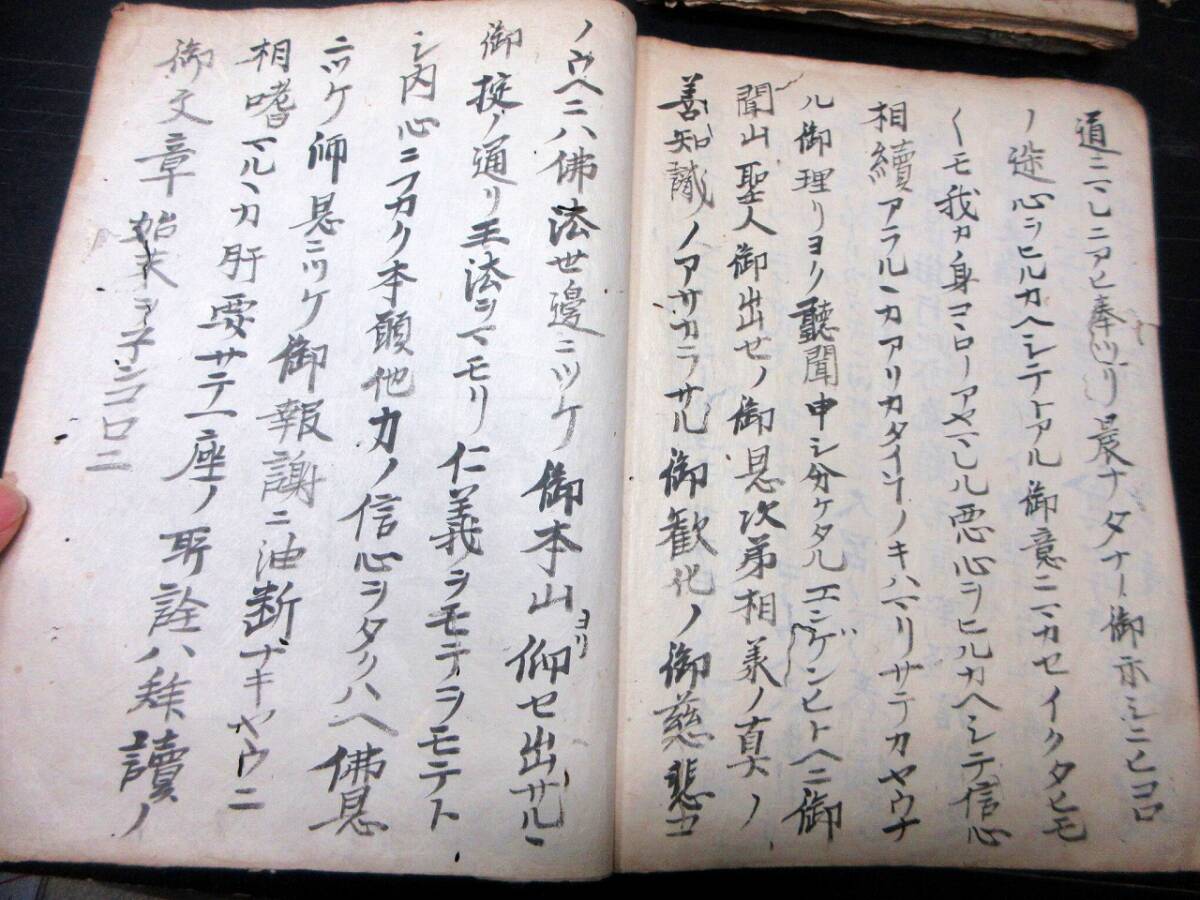 道ニヽシニアヒ奉ツリ晨ナタナー御示シニヒコロ
ノ迷心ヲヒルカヘシテトアル御意ニマカセイクタヒモ
〱モ我カ身コヽローアヤマレル悪心ヲヒルカヘシテ信心
相續アラルヽカアリカタイソノキハマリサテカヤウナ
ル御理リヨリ聽聞申シ分ケタル エンゲンヒトヘニ御
開山聖人御出セノ御恩次第相承ノ真ノ
善知識ノアサカラサル御歓化ノ御慈悲
ノウヘニハ佛法世邊ニツケ御本山ヨリ仰セ出サルヽ
御掟ノ通リ王法ヲマモリ仁義ヲモテヲモテト
シ内心ニフカク本願他力ノ信心ヲタクハヘ佛恩
ニツケ師恩ニツケ御報謝ニ油断ナキヤウニ
相嗜マルヽカ肝要サテ一座ノ所詮ハ拜讀ノ
御文章始末ヲ子ンコロニ